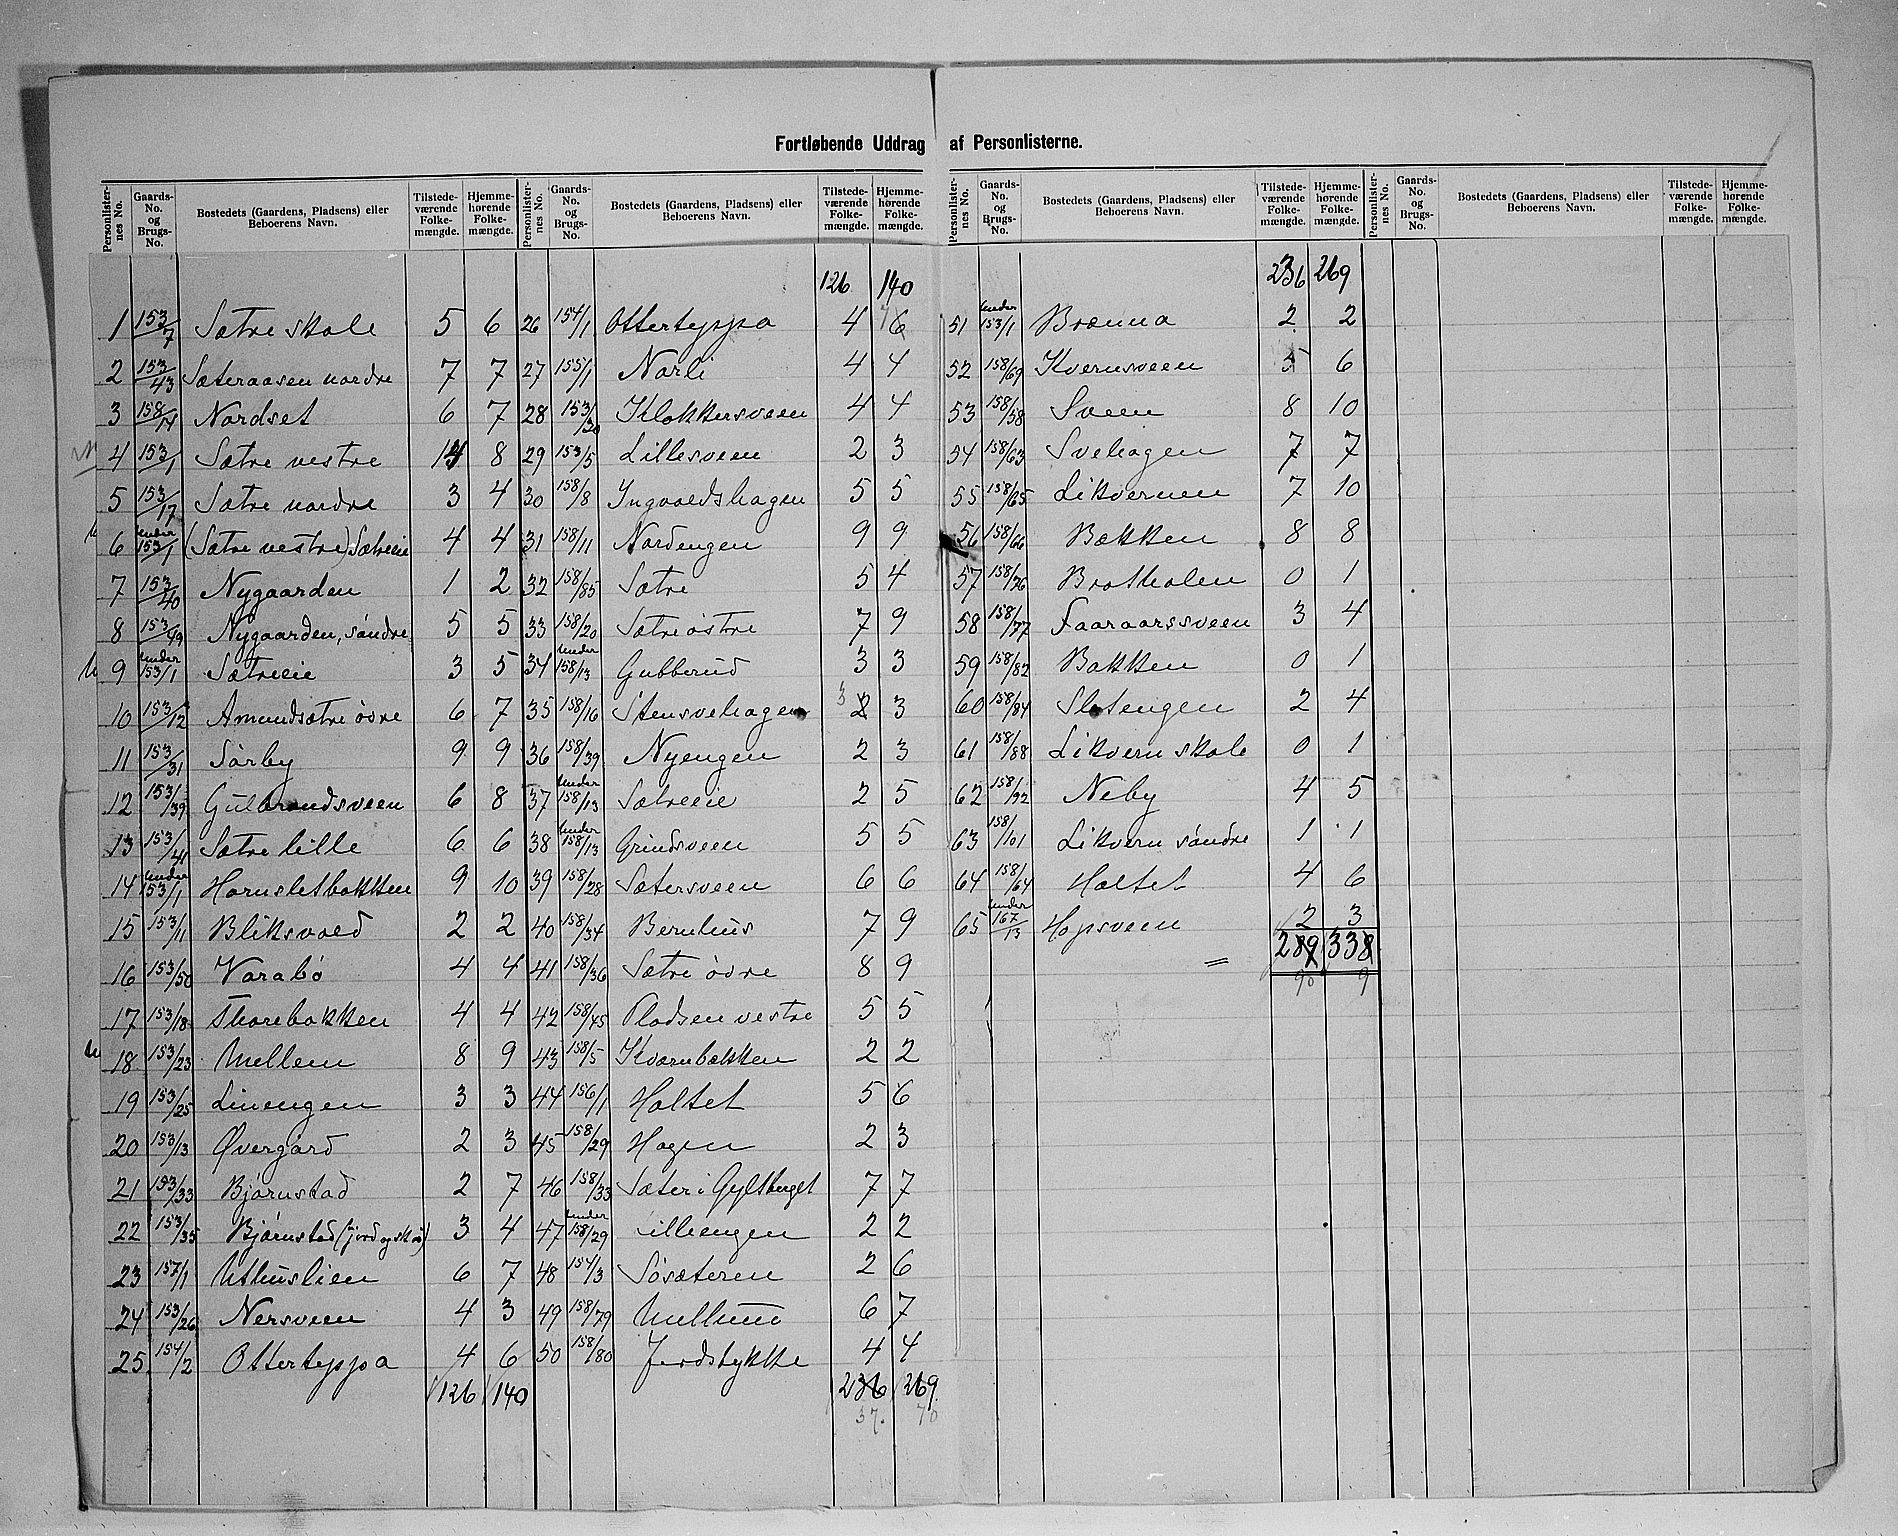 Fortløbende Uddrag af Personlisterne.
Personlister-nes No. | Gaards-No. og Brugs-No. | Bostedets (Gaardens, Pladsens) eller Beboerens Navn. | Tilstede-værende Folke-mængde. | Hjemme-hørende Folke-mængde.
1 153/7 Sætre skole 5 6
2 153/43 Sæteraasen nordre 7 7
3 158/14 Nordset 6 7
4 153/1 Sætre vestre 14 8
5 153/17 Sætre nordre 3 4
6 under 153/1 (Sætre vestre) Sætreeie 4 4
7 153/40 Nygaarden 1 2
8 153/49 Nygaarden, søndre 5 5
9 under 153/1 Sætreeie 3 5
10 153/12 Amundsætre øvre 6 7
11 153/31 Sørby 9 9
12 153/39 Gulbrandsveen 6 8
13 153/41 Sætre lille 6 6
14 under 153/1 Hornsletbakken 9 10
15 153/11 Bliksvold 2 2
16 153/50 Varabø 4 4
17 153/18 Thorebakken 4 4
18 153/23 Mellem 8 9
19 153/25 Linengen 3 3
20 153/13 Øvergård 2 3
21 153/33 Bjørnstad 2 7
22 153/35 Bjørnstad (jord og skov) 3 4
23 157/1 Uthuslien 6 7
24 153/26 Nersveen 4 3
25 154/2 Ottertyppa 4 6
126 140
Personlister-nes No. | Gaards-No. og Brugs-No. | Bostedets (Gaardens, Pladsens) eller Beboerens Navn. | Tilstede-værende Folke-mængde. | Hjemme-hørende Folke-mængde.
126 140
26 154/1 Ottertyppa 4 6
27 155/1 Narli 4 4
28 153/30 Klokkersveen 4 4
29 153/5 Lillesveen 2 3
30 158/8 Ingvoldshagen 5 5
31 158/11 Nordengen 9 9
32 158/85 Sætre 5 4
33 158/20 Sætre østre 7 9
34 under 158/13 Gubberud 3 3
35 158/16 Stensvehagen 3 2 3
36 158/39 Nyengen 2 3
37 under 158/13 Sætreeie 2 5
38 under 158/13 Grindsveen 5 5
39 158/28 Sætersveen 6 6
40 158/34 Bernhus 7 9
41 158/36 Sætre øvre 8 9
42 158/45 Pladsen vestre 5 5
43 158/5 Kvernbekken 2 2
44 156/1 Holtet 5 6
45 158/29 Hagen 2 3
46 158/33 Sæter i Gyltberget 7 7
47 under 158/29 Lilleengen 2 2
48 154/3 Søsæteren 2 6
49 158/79 Mellumo 6 7
50 158/80 Jordstykke 4 4
236 269
37. 70
Personlister-nes No. | Gaards-No. og Brugs-No. | Bostedets (Gaardens, Pladsens) eller Beboerens Navn. | Tilstede-værende Folke-mængde. | Hjemme-hørende Folke-mængde.
236 269
51 under 153/1 Brænna 2 2
52 158/69 Kvernsveen 5 6
53 158/58 Sveen 8 10
54 158/63 Svehagen 7 7
55 158/65 Likvernen 7 10
56 158/66 Bækken 8 8
57 158/76 Bratholen 0 1
58 158/77 Faaraarssveen 3 4
59 158/82 Bakken 0 1
60 158/84 Sletengen 2 4
61 158/88 Likvern skole 0 1
62 158/92 Neby 4 5
63 158/101 Likvern søndre 1 1
64 158/64 Holtet 4 6
65 under 167/13 Hopsveen 2 3
= 289 338
90 9
Personlister-nes No. | Gaards-No. og Brugs-No. | Bostedets (Gaardens, Pladsens) eller Beboerens Navn. | Tilstede-værende Folke-mængde. | Hjemme-hørende Folke-mængde.